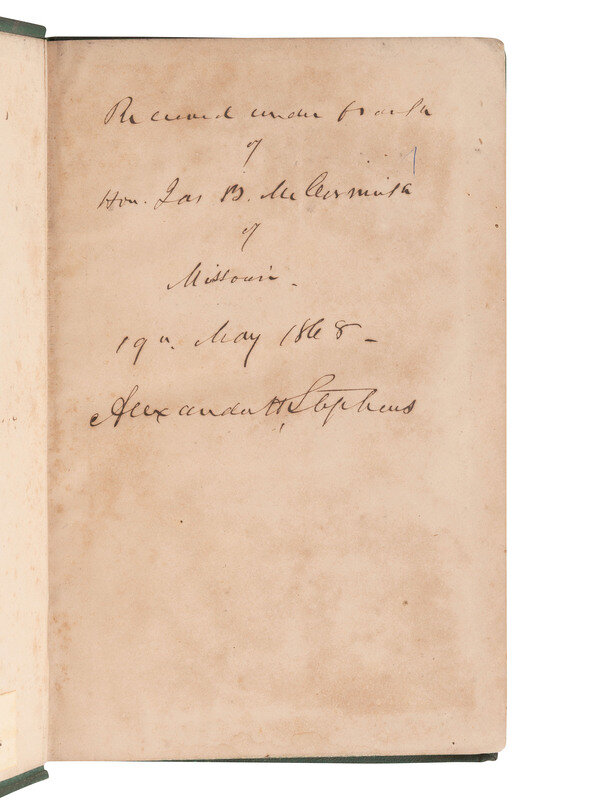 Received under frank
of
Hon. Jas B. McCormick
of
Missouri.
19th. May 1868 -
Alexander H Stephens